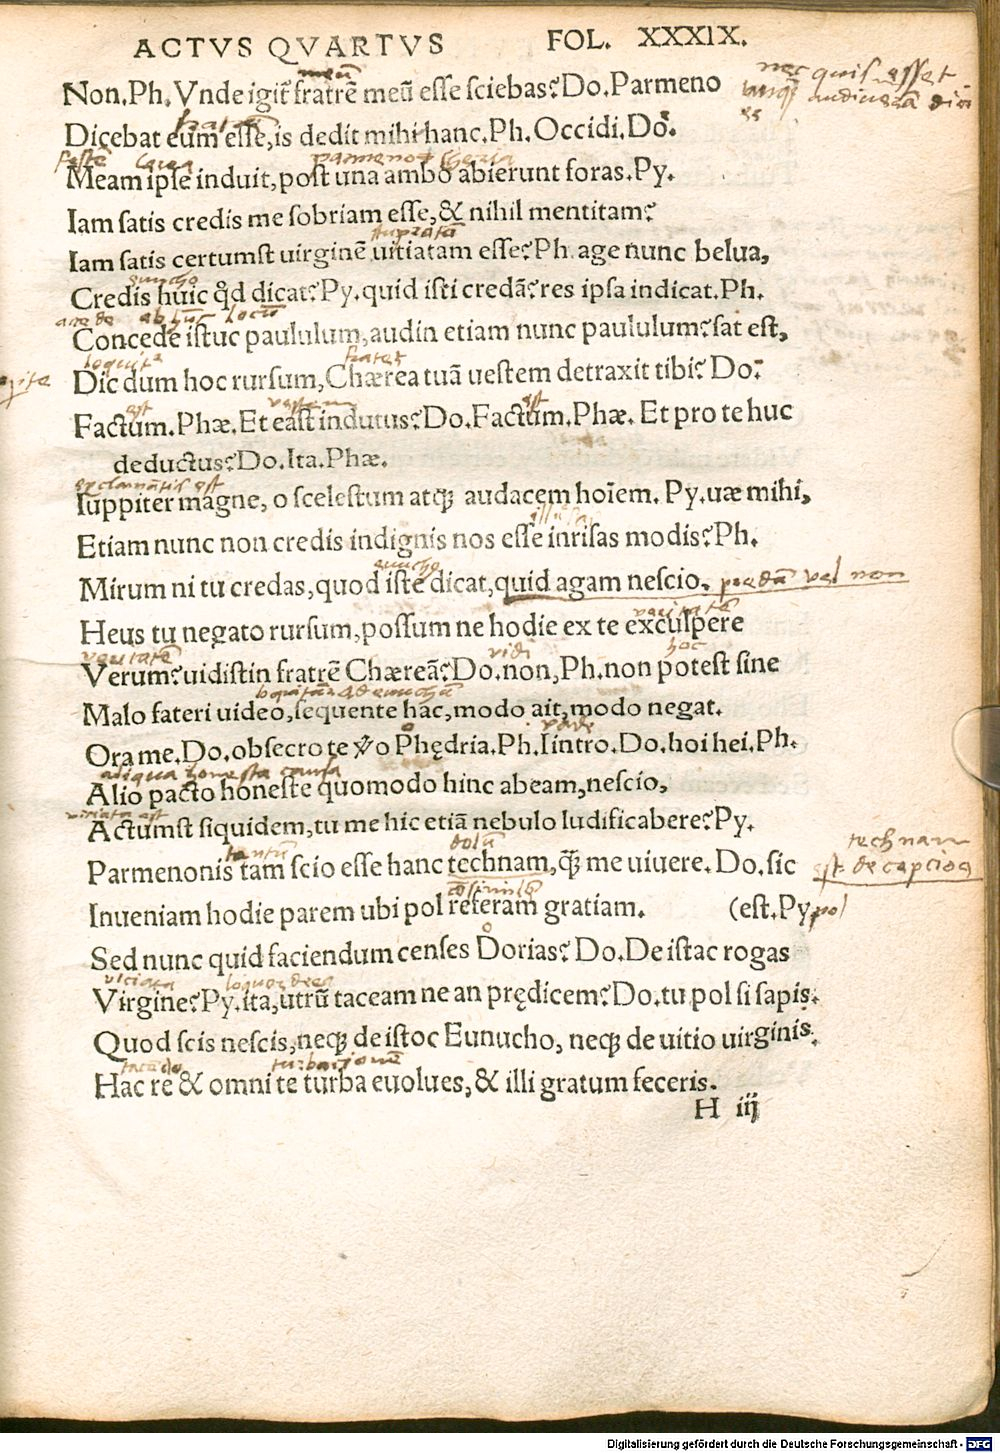 ACTVS QVARTVS FOL. XXXIX.
meū
Non.Ph.Vnde igit̃ fratrē meū esse sciebas? Do.Parmeno
nec quis esset
audiuerā dici
es
fratrē
Dicebat eum esse, is dedit mihi hanc.Ph.Occidi.Do.
vestē Cherea parmeno & cheria
Meam ipse induit, post una ambo abierunt foras.Py.
Iam satis credis me sobriam esse, & nihil mentitam?
stupratā
Iam satis certumst uirginē uitiatam esse? Ph. age nunc belua,
eunucho
Credis huic qđ dicat? Py.quid isti credā? res ipsa indicat.Ph.
ab hūc locū
Concede istuc paululum, audin etiam nunc paululum? sat est,
loquitr̃ frater
Dic dum hoc rursum, Chærea tuā uestem detraxit tibi? Do.
est vestem est
Factum.Phæ.Et east indutus? Do.Factum.Phæ. Et pro te huc
deductus? Do.Ita.Phæ.
exclamātis est
Iuppiter magne, o scelestum atq; audacem hoīem. Py.uæ mihi,
illusas
Etiam nunc non credis indignis nos esse inrisas modis? Ph.
eunucho
Mirum ni tu credas, quod iste dicat, quid agam nescio. credā vel non
veritatē
Heus tu negato rursum, possum ne hodie ex te exculpere
veritatē vidi hoc
Verum? uidistin fratrē Chæreā? Do.non, Ph.non potest sine
loquitur ad eunuchū
Malo fateri uideo, sequente hac, modo ait, modo negat.
o vade
Ora me.Do.obsecro te ꝟo Phędria.Ph.I intro.Do.hoi hei.Ph.
aliqua honesta causa
Alio pacto honeste quomodo hinc abeam, nescio,
viciata est
Actumst siquidem, tu me hic etiā nebulo ludificabere? Py.
tantū dolū
Parmenonis tam scio esse hanc technam, q̄ me uiuere. Do.sic
technam
est decepcio
cōsimilē
Inueniam hodie parem ubi pol referam gratiam. (est.Py. pol
o
Sed nunc quid faciendum censes Dorias? Do.De istac rogas
viciata
Virgine? Py.ita, utrū taceam ne an prędicem? Do.tu pol si sapis.
Quod scis nescis, neq; de istoc Eunucho, neq; de uitio uirginis.
tacēdo turbacionē
Hac re & omni te turba euolues, & illi gratum feceris.
H iij
Digitalisierung gefördert durch die Deutsche Forschungsgemeinschaft - DFG